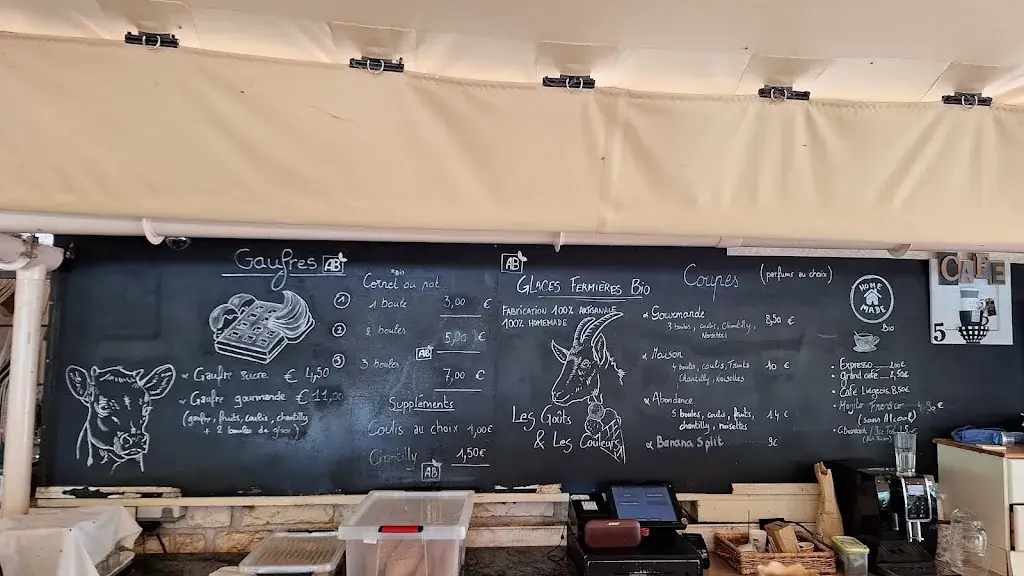 Gaufres AB
Gaufre sucre € 4,50
Gaufre gourmande € 11,00
(gaufre, fruits, coulis, chantilly
+ 2 boules de glace)
*Bio
Cornet ou pot
1 1 boule 3,00 €
2 2 boules 5,00 €
AB
3 3 boules 7,00 €
Suppléments
Coulis au choix 1,00€
Chantilly 1,50€
AB
AB
GLACES FERMIÈRES BIO
FABRICATION 100% ARTISANALE
100% HOMEMADE
Les Goûts
& Les Couleurs
Coupes (parfums au choix)
Gourmande 8,50 €
3 boules, coulis, Chantilly,
Noisettes
Maison 10 €
4 boules, coulis, Fruits
Chantilly, noisettes
Abondance 14 €
5 boules, coulis, fruits,
chantilly, noisettes
Banana Split 9€
HOME
MADE
Bio
Expresso
Grand café
Café Liégeois 8,50€
Mojito
(sans Alcool)
CAFE
5